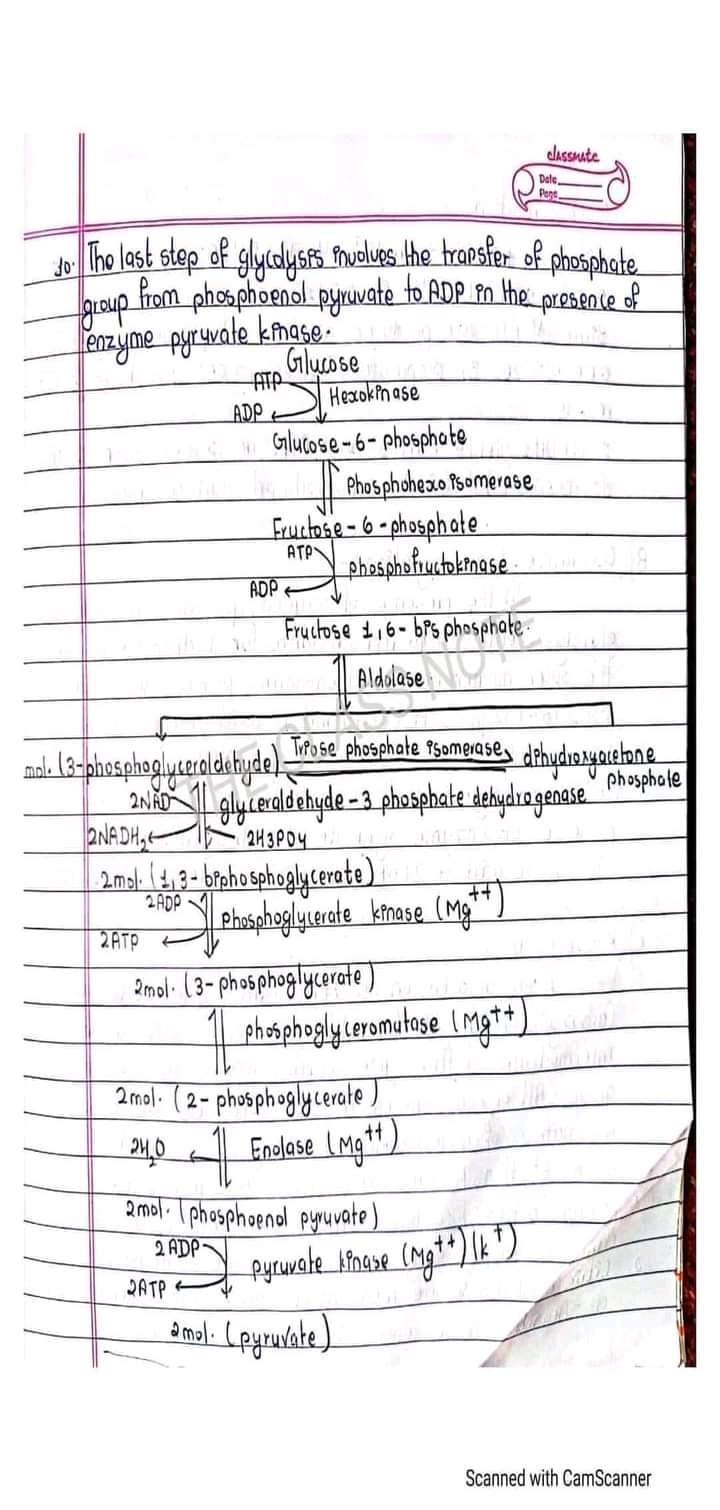 classmate
Date
Page
10. The last step of glycolysis involves the transfer of phosphate
group from phosphoenol pyruvate to ADP in the presence of
enzyme pyruvate kinase.
Glucose
ATP
Hexokinase
ADP
Glucose-6-phosphate
Phosphohexo isomerase
Fructose-6-phosphate
ATP
phosphofructokinase.
ADP
Fructose 1,6-bisphosphate.
Aldolase
mol. (3-phosphoglyceraldehyde) Triose phosphate isomerase dihydroxyacetone
phosphate
2NAD glyceraldehyde-3 phosphate dehydrogenase
2NADH2 2H3PO4
2mol. (1,3-biphosphoglycerate)
2ADP
phosphoglycerate kinase (Mg++)
2ATP
2mol. (3-phosphoglycerate)
phosphoglyceromutase (Mg++)
2mol. (2-phosphoglycerate)
2H2O Enolase (Mg++)
2mol. (phosphoenol pyruvate)
2ADP
pyruvate kinase (Mg++)(k+)
2ATP
2mol. (pyruvate)
THE CLASS NOTE
Scanned with CamScanner